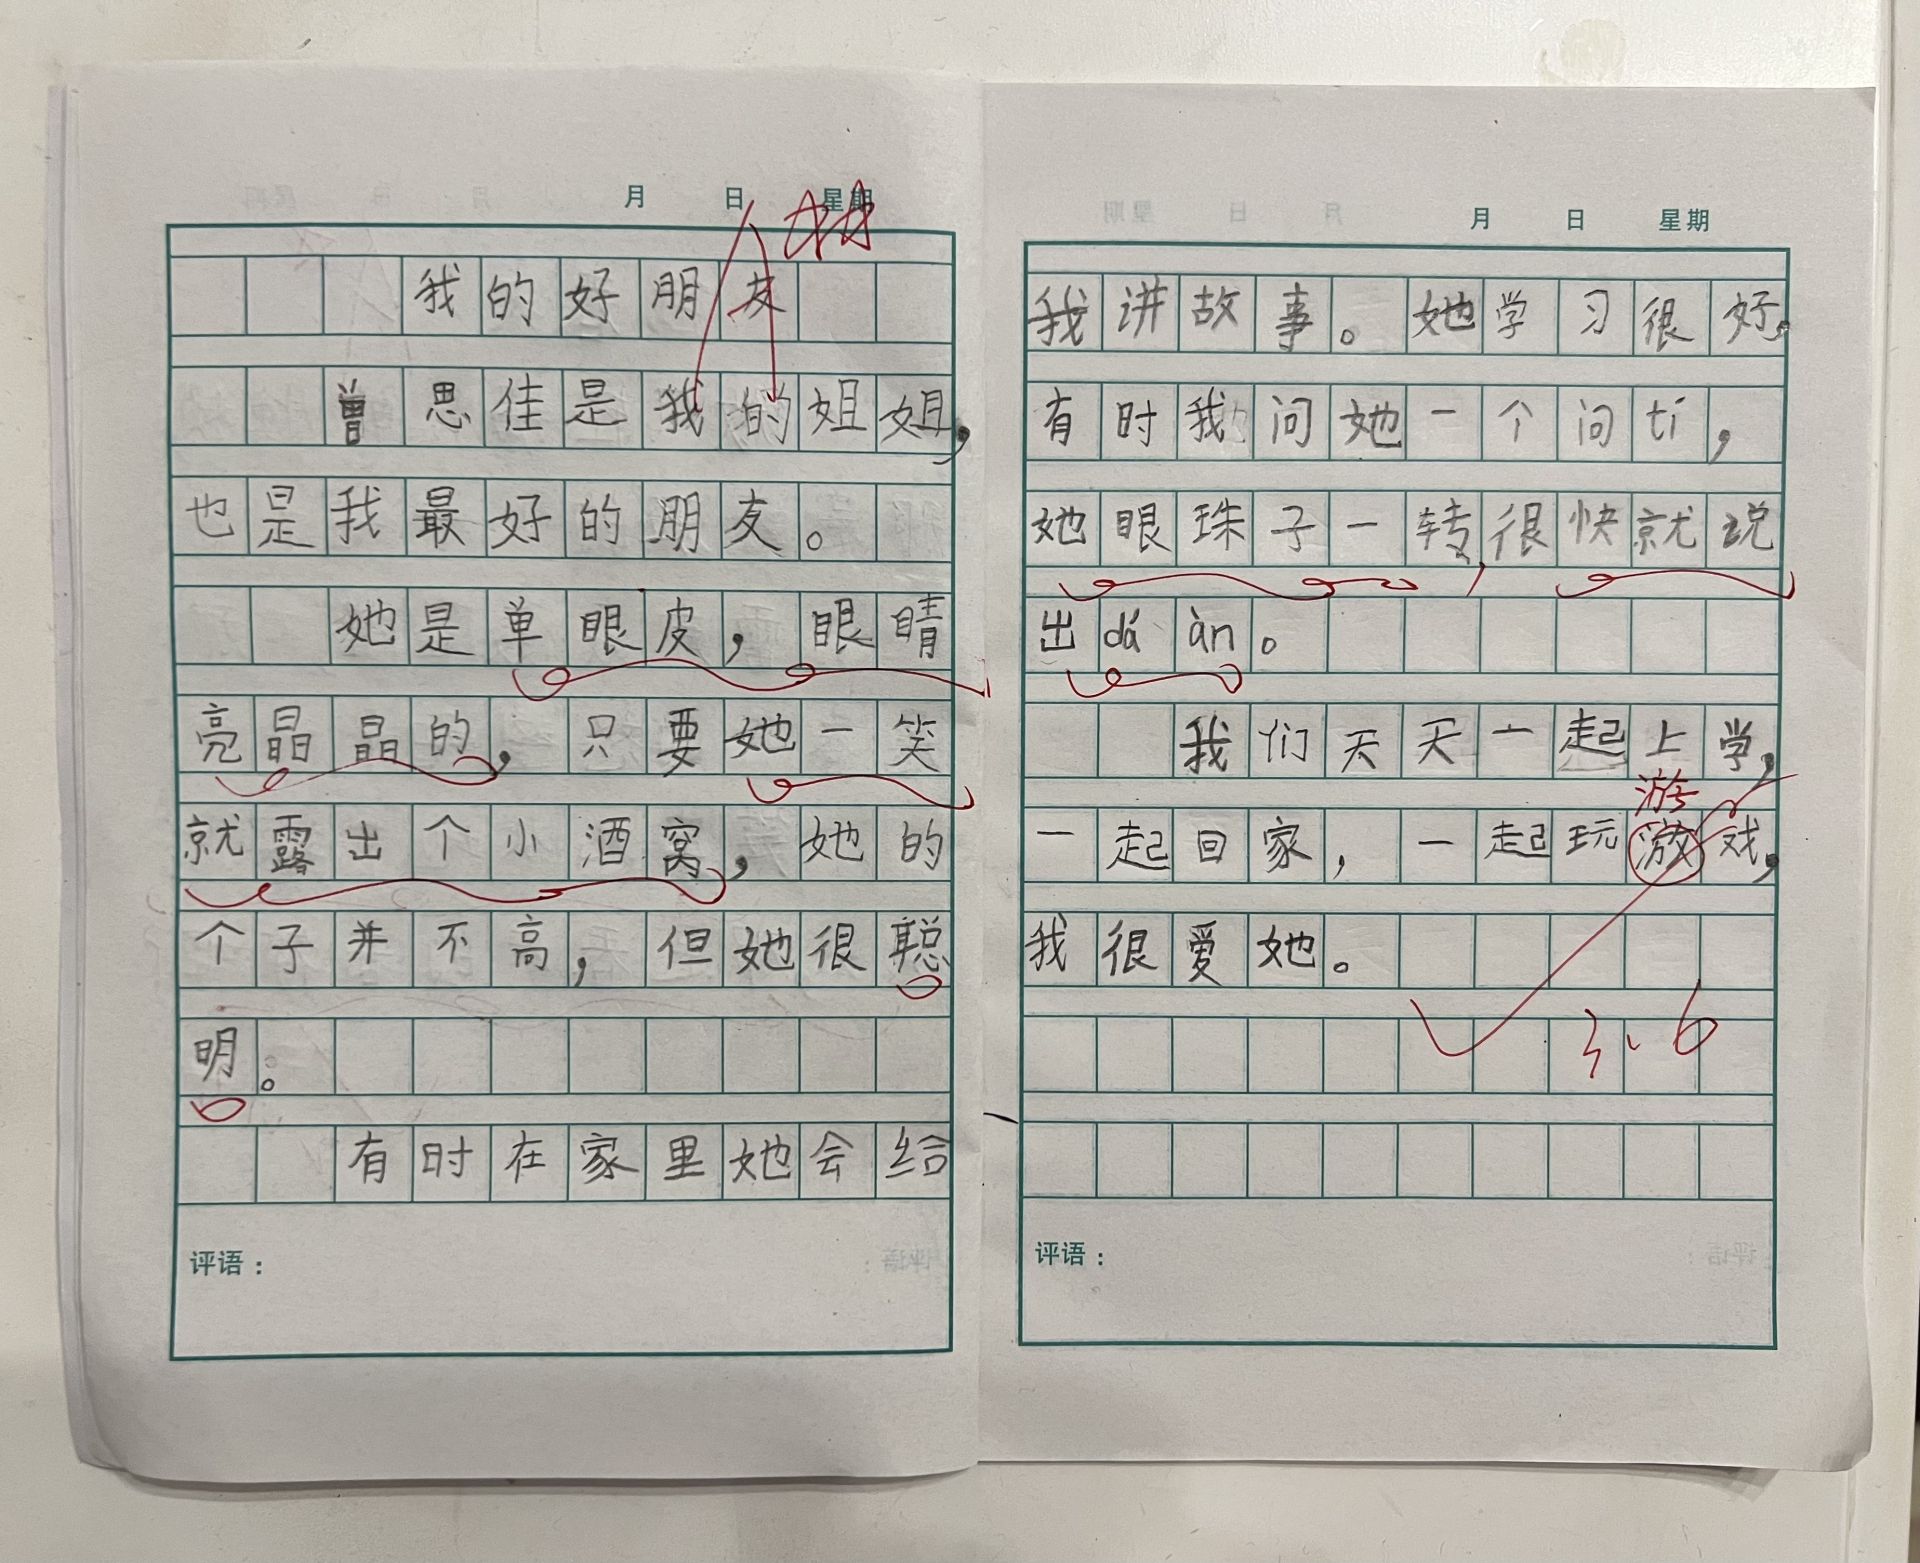 月 日 星期
我的好朋友
曾思佳是我的姐姐,
也是我最好的朋友。
她是单眼皮,眼睛
亮晶晶的,只要她一笑
就露出个小酒窝,她的
个子并不高,但她很聪
明。
有时在家里她会给
评语:
月 日 星期
我讲故事。她学习很好。
有时我问她一个问tí,
她眼珠子一转,很快就说
出dá àn。
我们天天一起上学,
游
一起回家,一起玩游戏,
我很爱她。
3.6
评语: